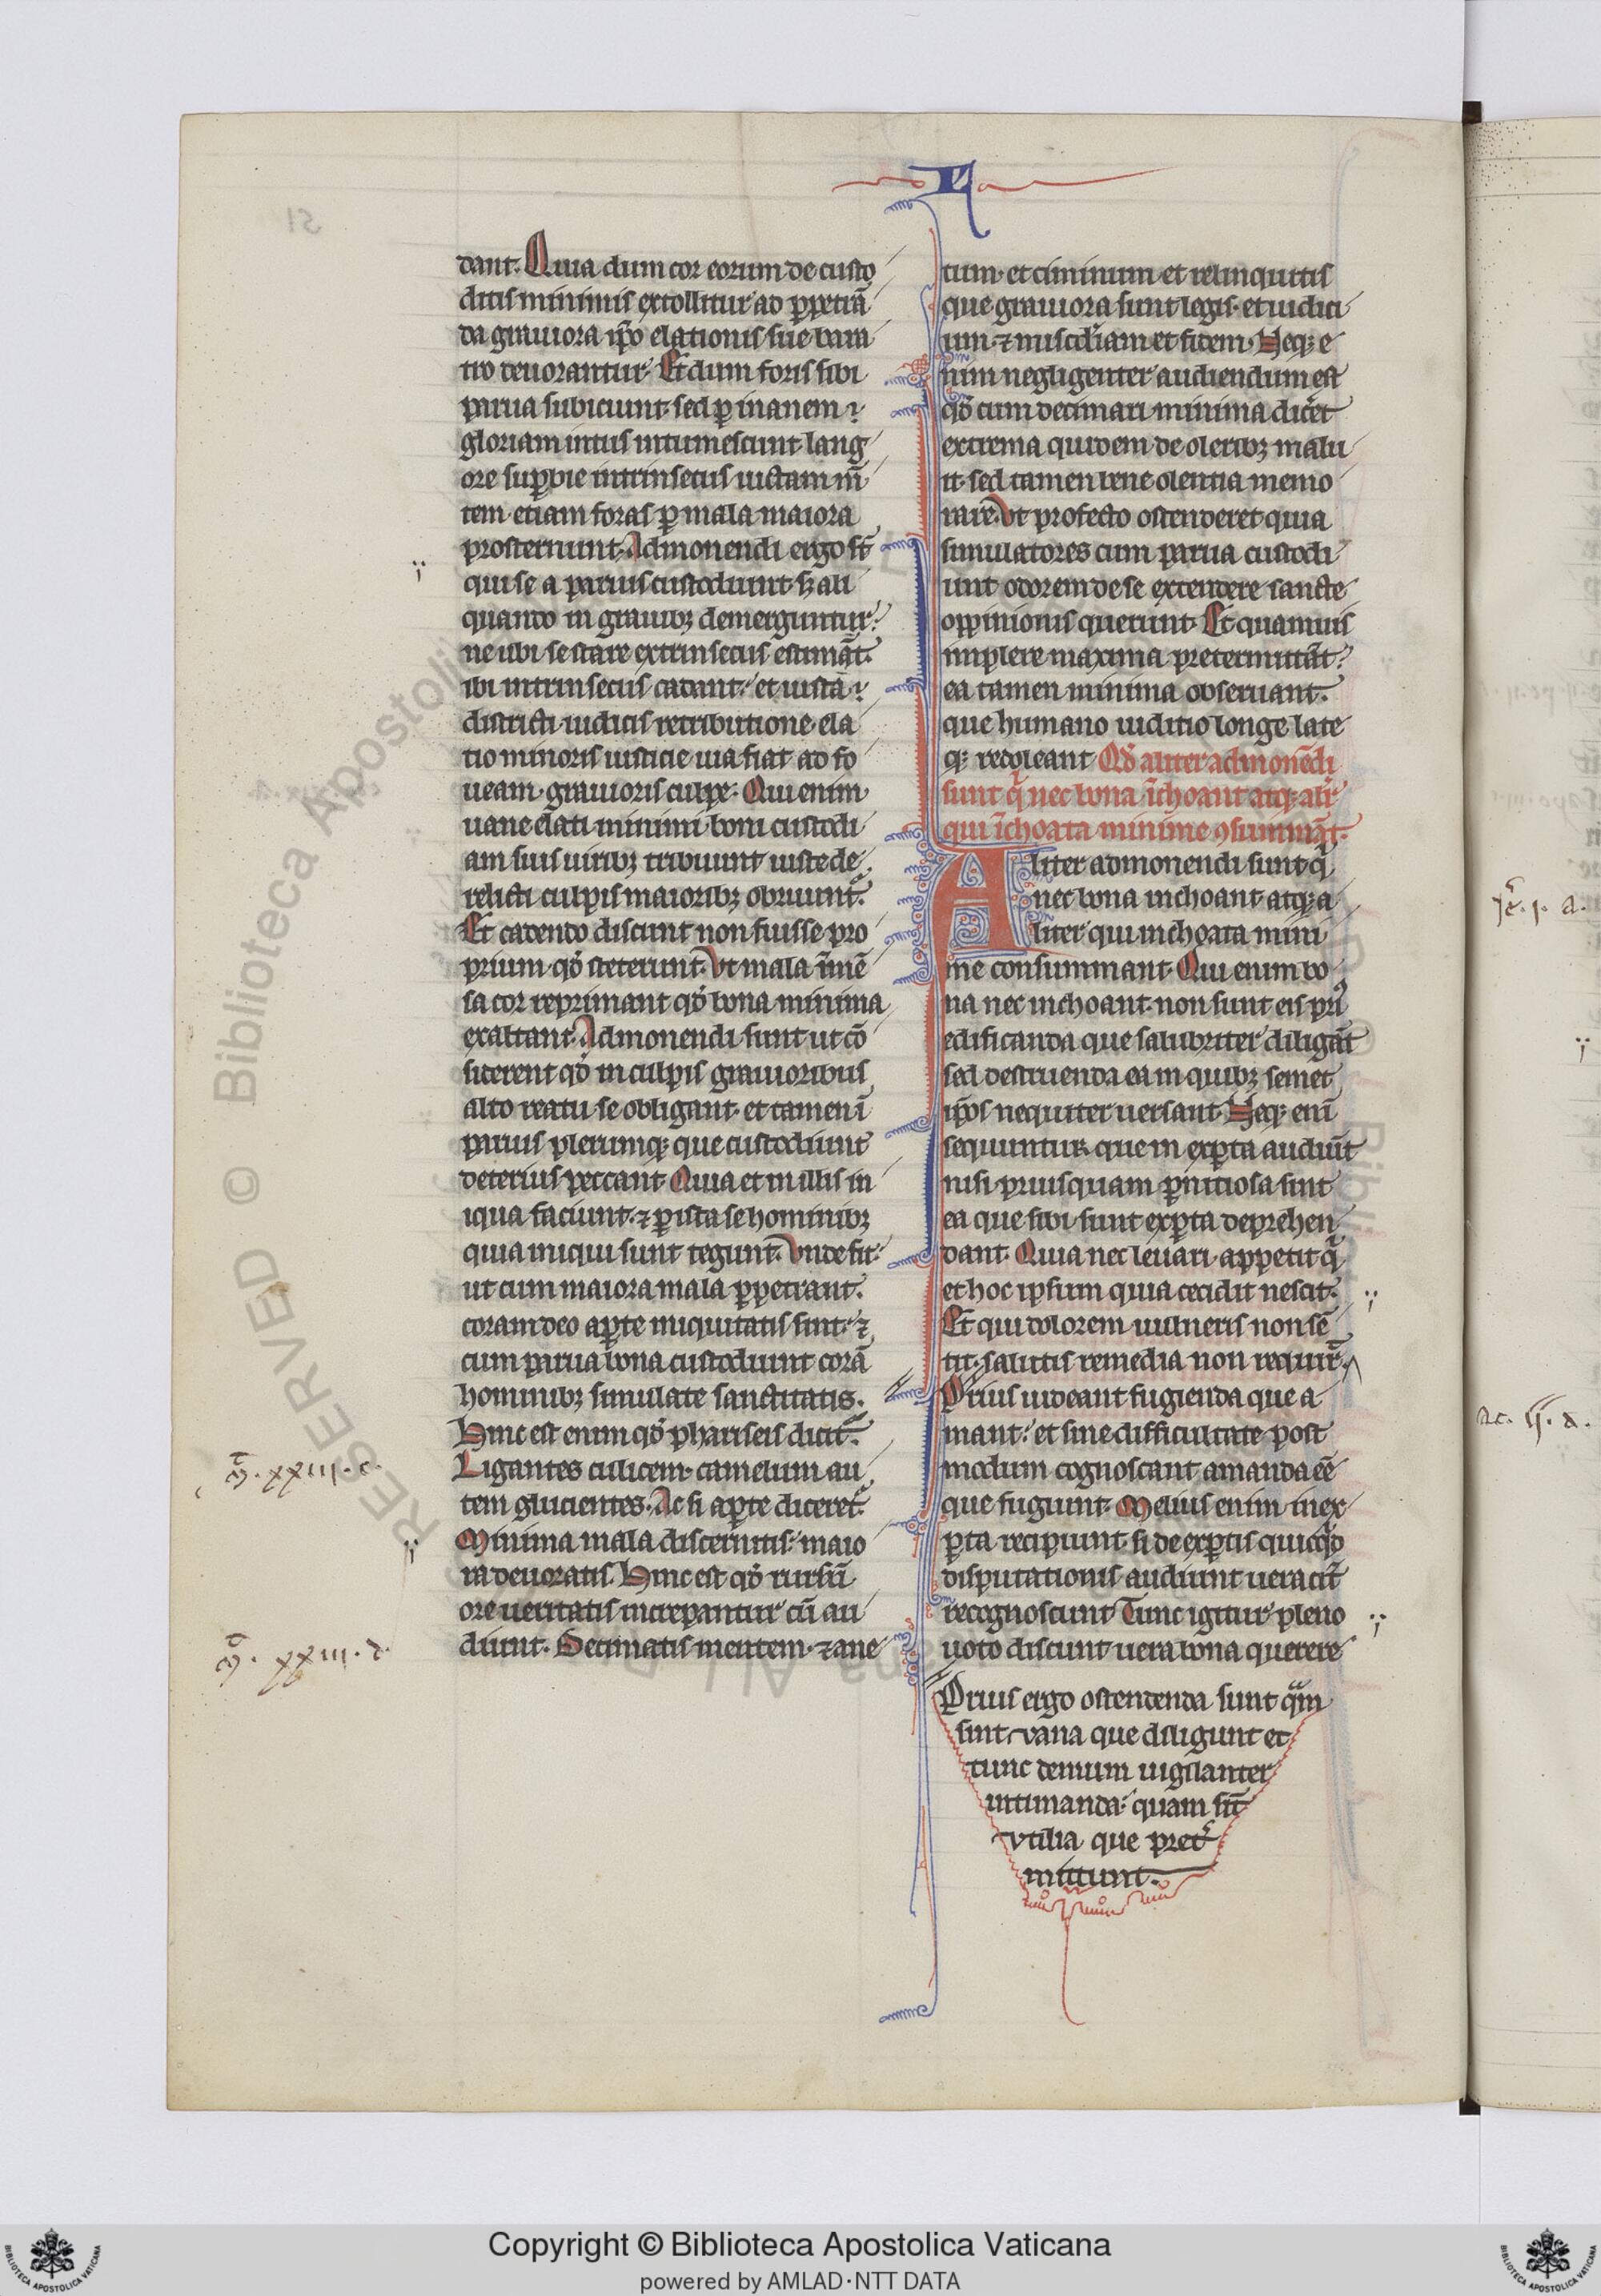 dant. Quia dum cor eorum de custo
ditis minimis extollitur ad ꝑpetrā
da grauiora ip̄o elationis sue bara
tro deuorantur. Et dum foris sibi
parua subiciunt. sed ꝑ inanem
gloriam intus intumescunt lang
ore suꝑbie intrinsecus uictam m̄
tem etiam foras ꝑ mala maiora
prosternunt. Admonendi ergo st̄
qui se a paruis custodiunt sꝫ ali
quando in grauibꝫ demerguntur.
ne ubi se stare extrinsecus estimāt.
ibi intrinsecus cadant. et iuxta
districti iudicis retributione ela
tio minoris iusticie uia fiat ad fo
ueam grauioris culpe. Qui enim
uane elati minimi boni custodi
am suis uiribꝫ tribuunt iuste de
relicti culpis maioribꝫ obruunt̄.
Et cadendo discunt non fuisse pro
prium qď steterunt. Vt mala īmē
sa cor reprimant qď bona minima
exaltant. Admonendi sunt ut cō
siderent qď in culpis grauioribus
alto reatu se obligant. et tamen ī
paruis plerumqꝫ que custodiunt
deterius peccant. Quia et in illis in
iqua faciunt. ⁊ ꝑ ista se hominibꝫ
quia iniqui sunt tegunt. Vnde fit.
ut cum maiora mala ꝑpetrant.
coram deo aꝑte iniquitatis sint. ⁊
cum parua bona custodiunt corā
hominibꝫ simulate sanctitatis.
Hinc est enim qď phariseis dicit̄.
Ligantes culicem. camelum au
tem glucientes. Ac si aꝑte diceret̄.
Minima mala discernitis. maio
ra deuoratis. Hinc est qď rursū
ore ueritatis increpantur cū au
diunt. Decimatis mentem. ⁊ ane
tum. et ciminum et relinquitis
que grauiora sunt legis. et iudici
um. ⁊ mis̄cdiam et fidem. Neqꝫ e
nim negligenter audiendum est
qď cum decimari minima dicet
extrema quidem de oleribꝫ malu
it. sed tamen bene olentia memo
rare. Vt profecto ostenderet quia
simulatores cum parua custodi
unt odorem de se extendere sancte
oppinionis querunt. Et quamuis
implere maxima pretermittāt.
ea tamen minima obseruant.
que humano iuditio longe late
qꝫ redoleant. Qď aliter admonēdi
sunt q̄ nec bona īchoant atqꝫ alit̄
qui īchoata minime ꝯsummāt.
Aliter admonendi sunt q̄
nec bona inchoant atqꝫ a
liter qui inchoata mini
me consummant. Qui enim bo
na nec inchoant. non sunt eis priꝰ
edificanda que salubriter diligāt
sed destruenda ea in quibꝫ semet
ip̄os nequiter uersant. Neqꝫ enī
sequuntur que inexꝑta audiūt
nisi priusquam ꝑnitiosa sint
ea que sibi sunt exꝑta deprehen
dant. Quia nec leuari appetit q̄
et hoc ipsum quia cecidit nescit.
Et qui dolorem uulneris non sē
tit. salutis remedia non requir̄.
Prius uideant fugienda que a
mant. et sine difficultate post
modum cognoscant amanda eē
que fugiunt. Melius enim inex
ꝑta recipiunt. si de exꝑtis quicqď
disputationis audiunt ueracit̄
recognoscunt. Tunc igitur pleno
uoto discunt uera bona querere
Prius ergo ostendenda sunt q̄m
sint vana que diligunt et
tunc demum uigilanter
intimanda. quam sīt
vtilia que pret̄
mittunt.
m̄. xxiii. c.
m̄. xxiii. d.
51
© Biblioteca Apostolica
RESERVED
Copyright © Biblioteca Apostolica Vaticana
powered by AMLAD·NTT DATA